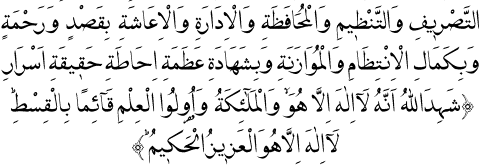 التَّصْرِيفِ وَالتَّنْظِيمِ وَالْمُحَافَظَةِ وَالْاِدَارَةِ وَالْاِعَاشَةِ بِقَصْدٍ وَرَحْمَةٍ
وَبِكَمَالِ الْاِنْتِظَامِ وَالْمُوَازَنَةِ وَبِشَهَادَةِ عَظَمَةِ اِحَاطَةِ حَقِيقَةِ اَسْرَارِ
﴿شَهِدَ اللّٰهُ اَنَّهُ لَٓا اِلٰهَ اِلَّا هُوَۙ وَالْمَلٰٓئِكَةُ وَاُو۬لُوا الْعِلْمِ قَٓائِمًا بِالْقِسْطِۜ
لَٓا اِلٰهَ اِلَّا هُوَ الْعَز۪يزُ الْحَك۪يمُۜ﴾